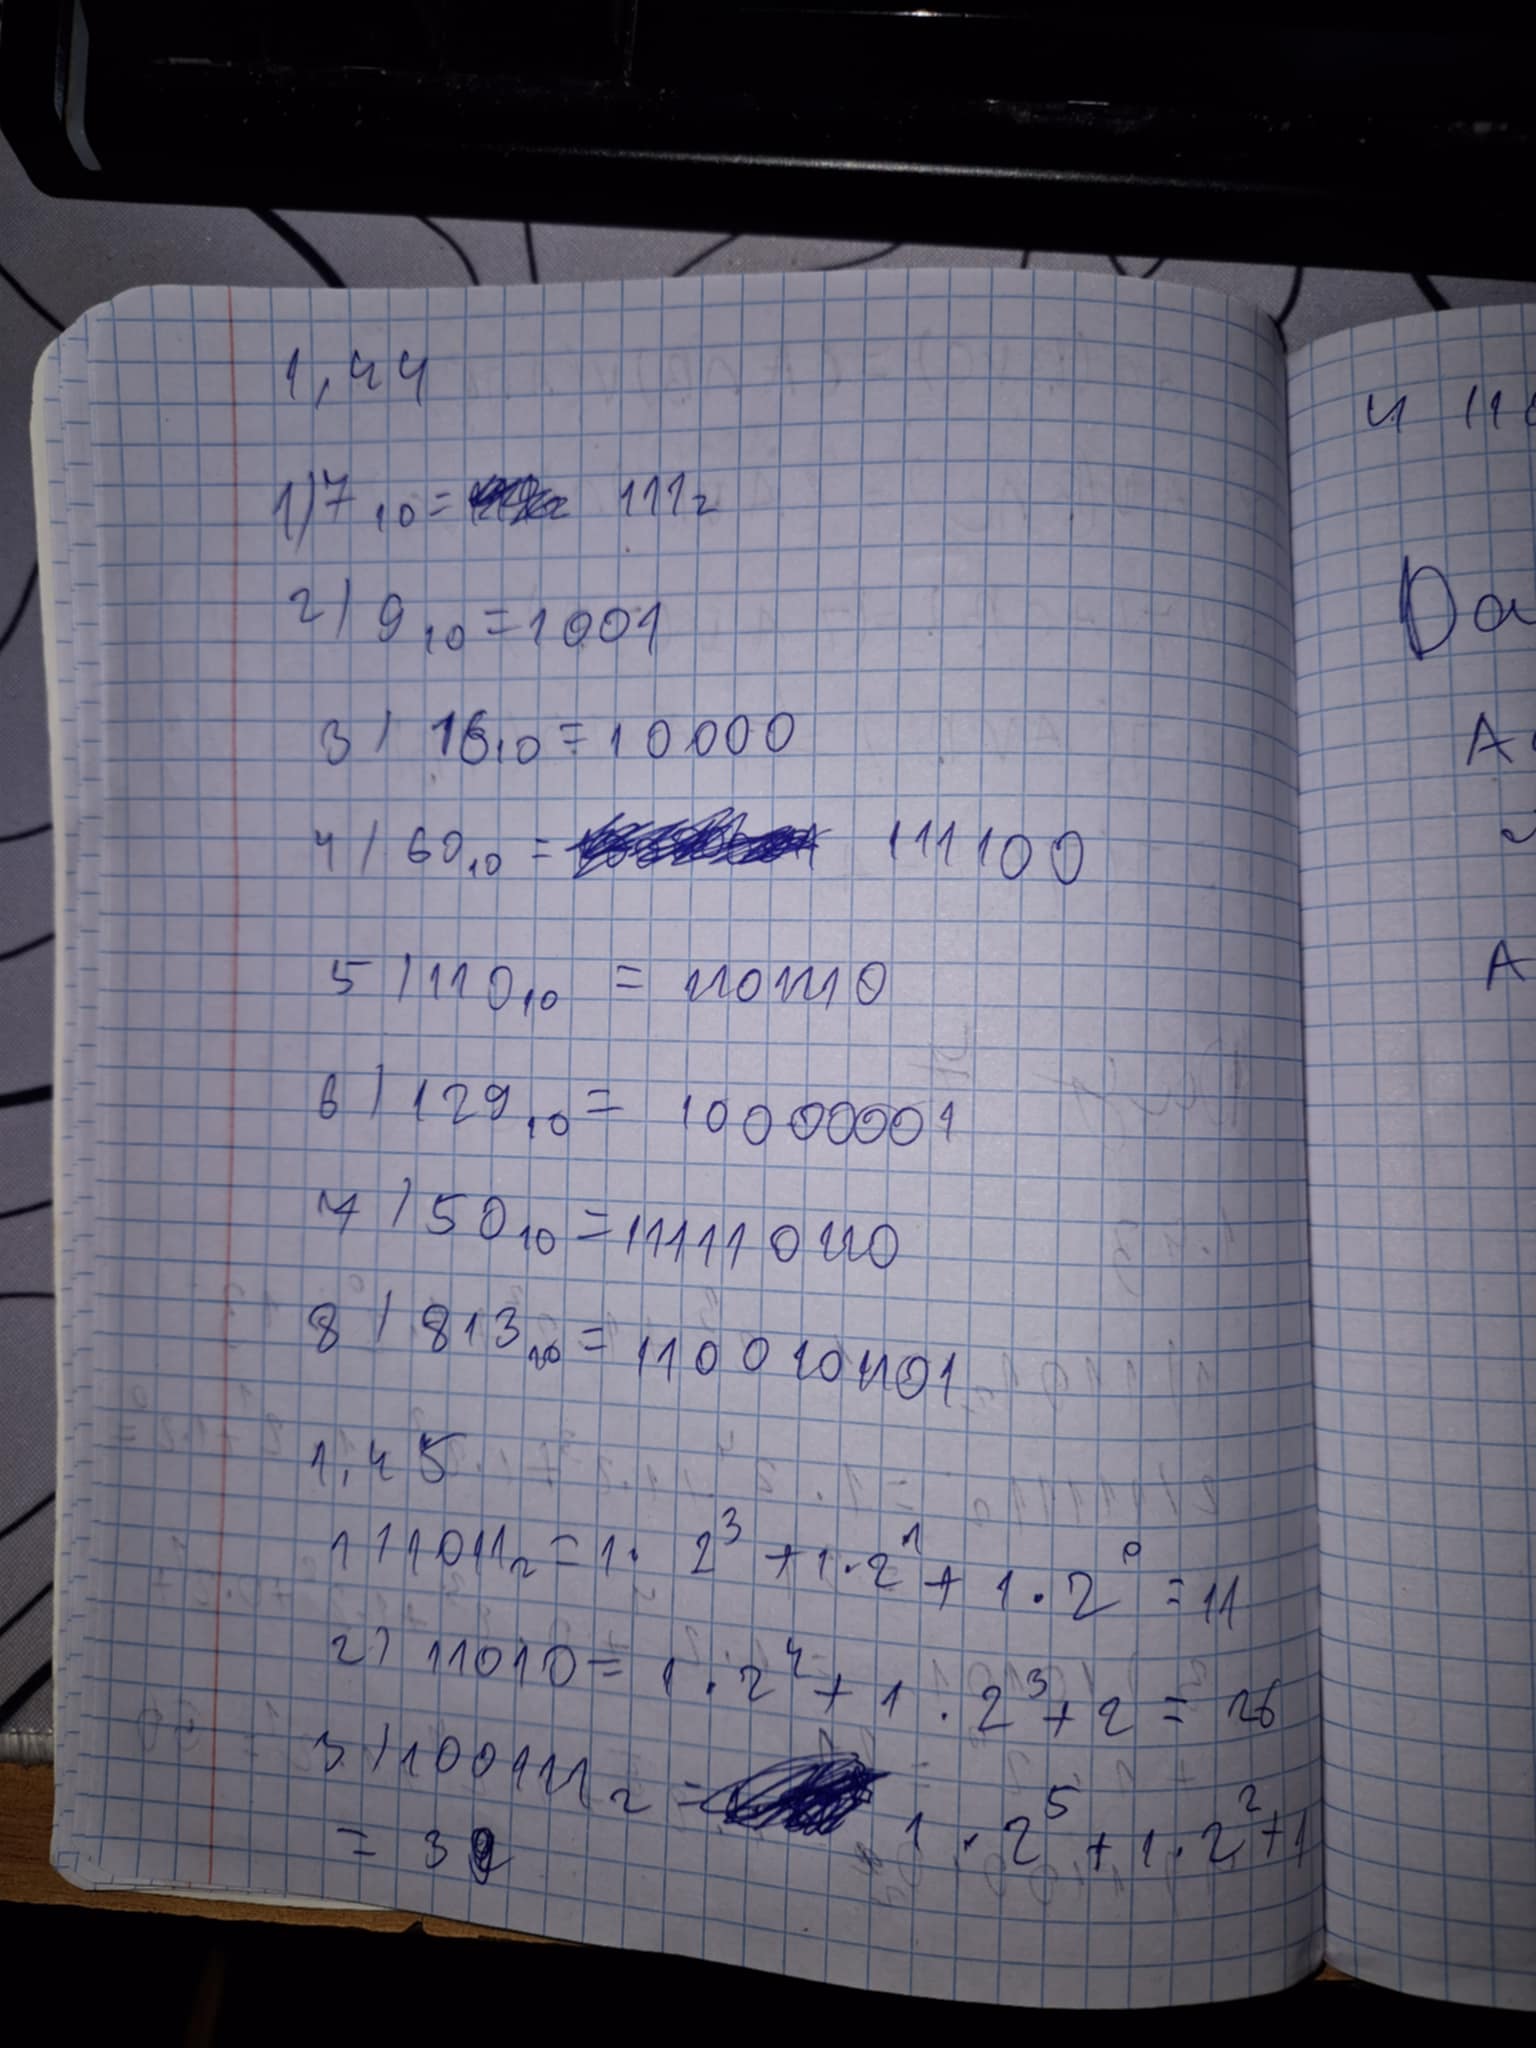 1,44
1) 7₁₀ = 111₂
2) 9₁₀ = 1001
3) 16₁₀ = 10000
4) 60₁₀ = 111100
5) 110₁₀ = 1101110
6) 129₁₀ = 10000001
7) 50₁₀ = 111110110
8) 813₁₀ = 1100101101
1,45
1) 1011₂ = 1 · 2³ + 1 · 2¹ + 1 · 2⁰ = 11
2) 11010 = 1 · 2⁴ + 1 · 2³ + 2 = 26
3) 100111₂ = 1 · 2⁵ + 1 · 2² + 1
= 39
и 11
Да
А
А